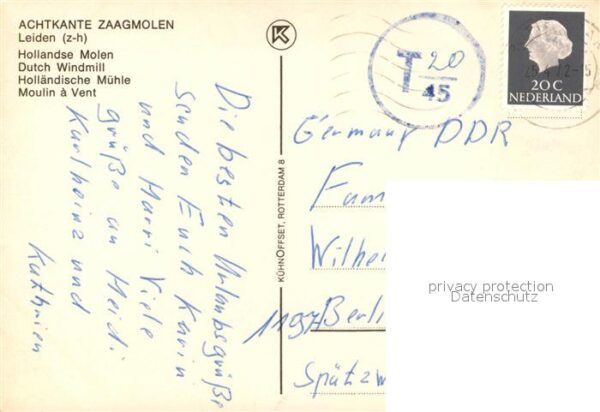 ACHTKANTE ZAAGMOLEN
Leiden (z-h)
Hollandse Molen
Dutch Windmill
Holländische Mühle
Moulin à Vent
Die besten Urlaubsgrüße
senden Euch Karin
und Harri Viele
grüße an Heidi
Karlheinz und
Kathrien
KÜHNOFFSET, ROTTERDAM 8
T 20
45
20 C
NEDERLAND
Germany DDR
Fam
Wilhe
Berli
Spätzw
privacy protection
Datenschutz